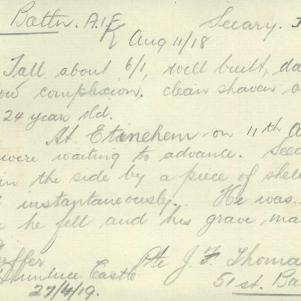 Battn. A.I.F. Secary.
Aug 11/18
Tall about 6/1, well built, da
ow complexion. clean shaven a
24 year old.
At Etinehem on 11th A
were waiting to advance. Sec
in the side by a piece of shel
d instantaneously. He was
e he fell and his grave ma
offer Pte J. F Thoma
Dunluce Castle 51st. Ba
27/4/19.